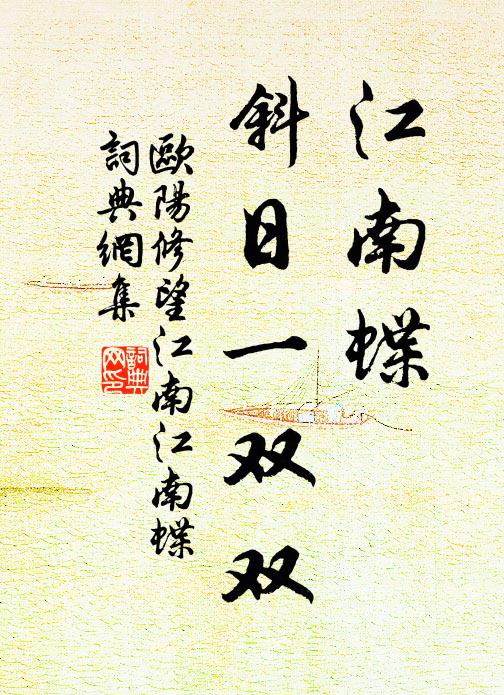 江南蝶
斜日一双双
歐陽修望江南江南蝶
詞典網集
詞典网印